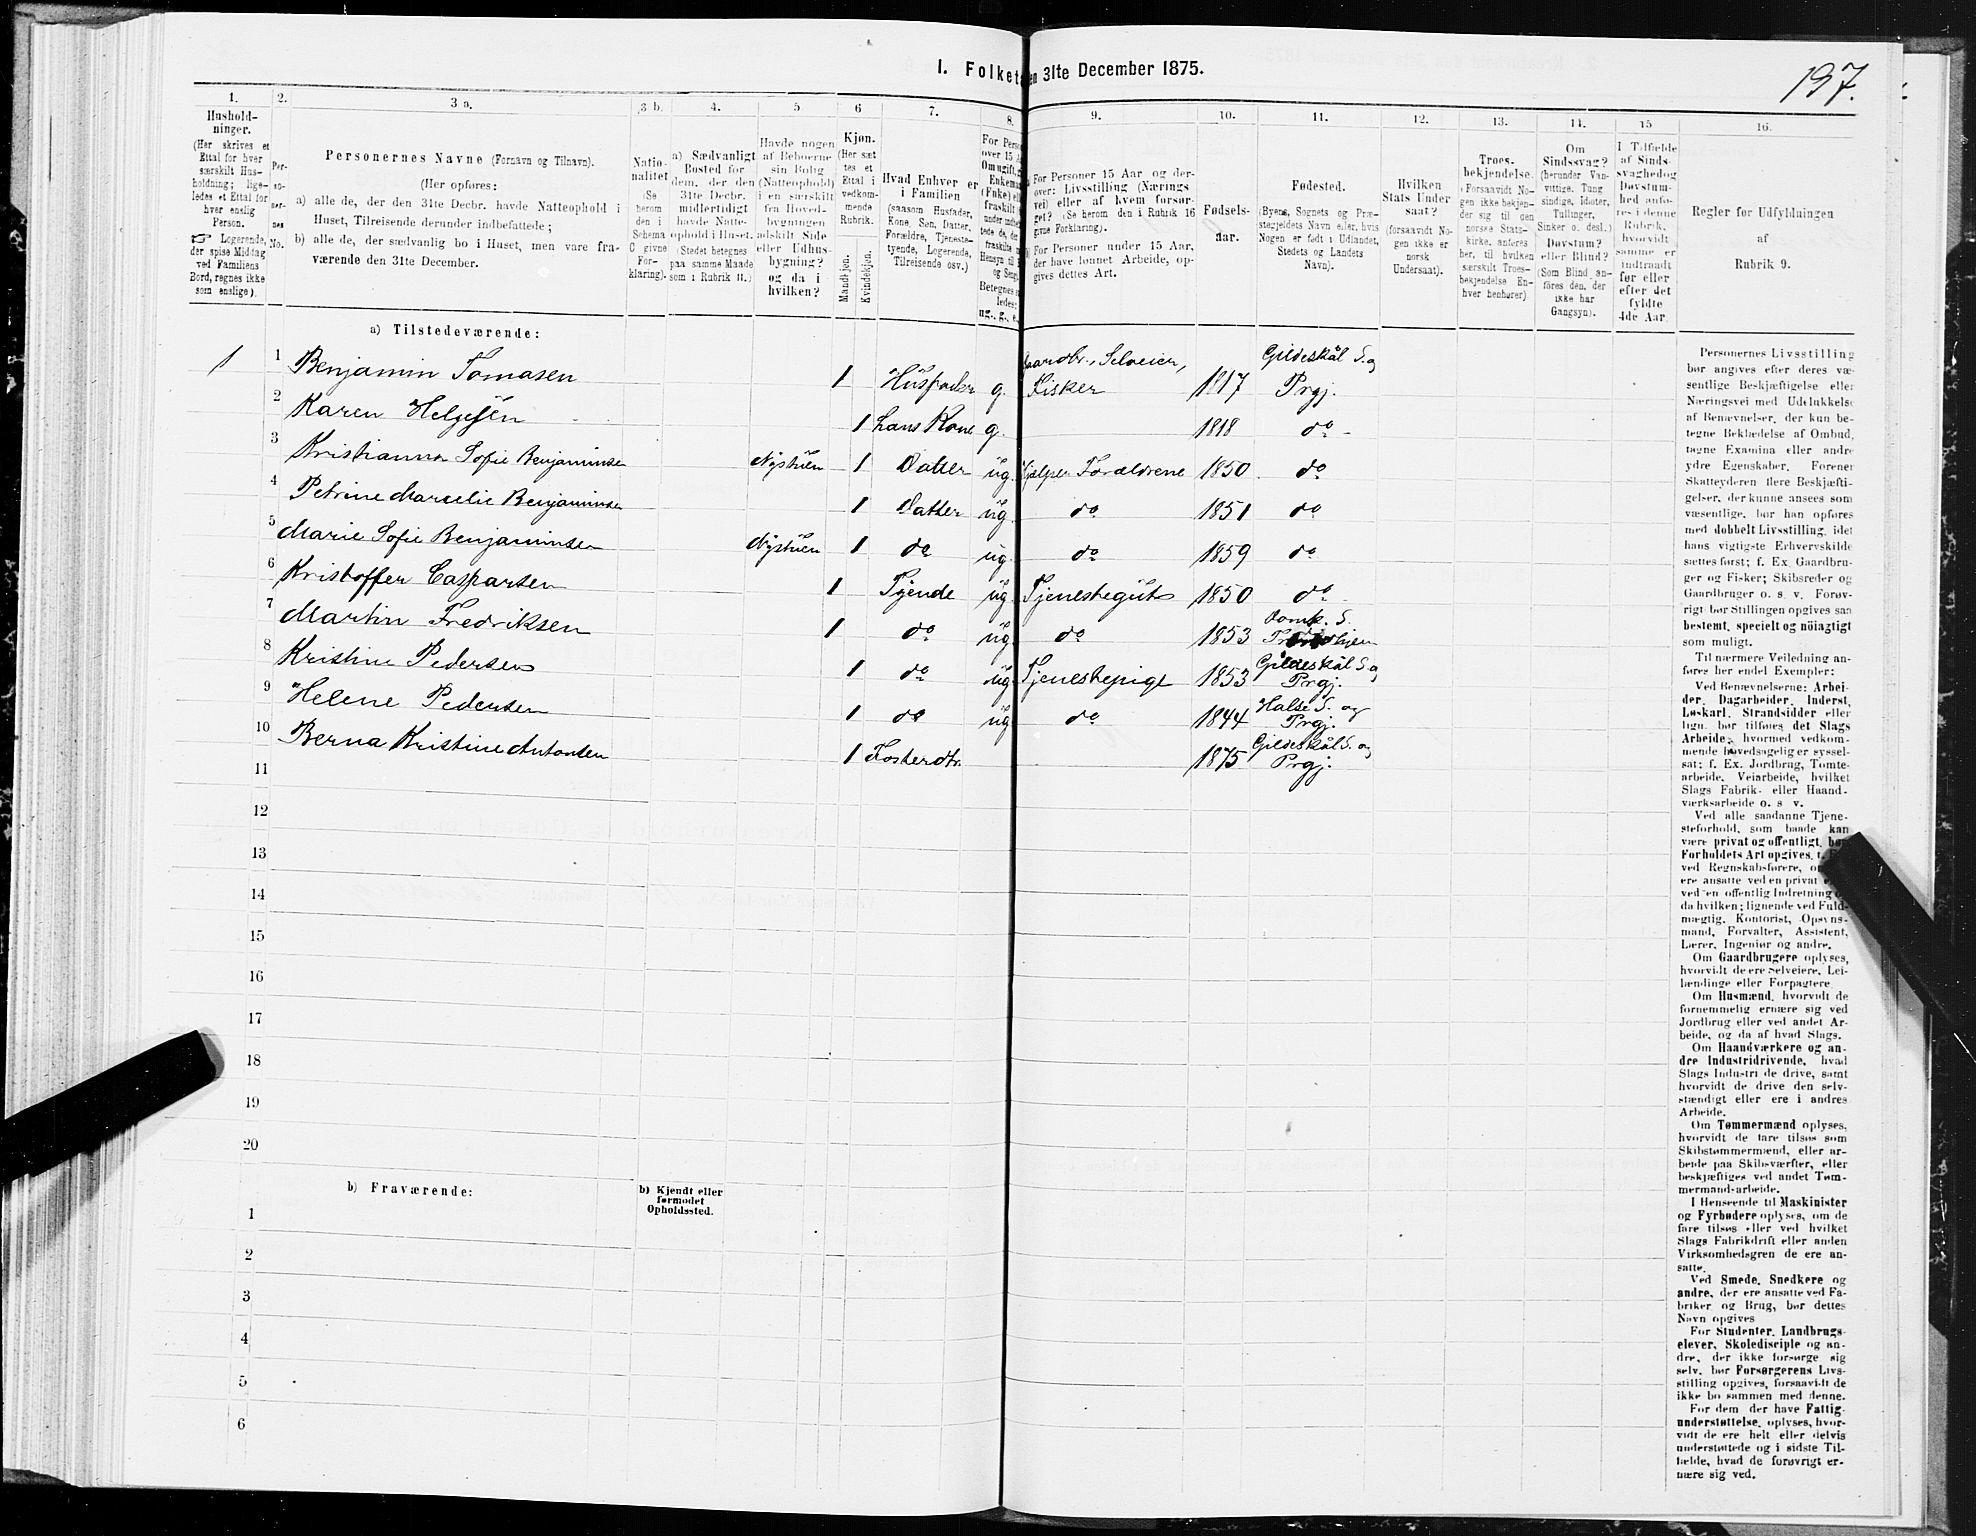 I. Folket en 31te December 1875.
197.
1. 2. 3 a. 3 b. 4. 5 6 7. 8. 9. 10. 11. 12. 13. 14. 15 16.
Hushold-
ninger.
(Her skrives et
Ettal for hver
særskilt Hus-
holdning; lige-
ledes et Ettal for
hver enslig
Person.
☞ Logerende,
der spise Middag
ved Familiens
Bord, regnes ikke
som enslige).
Per-
so-
ner-
nes
No.
Personernes Navne (Fornavn og Tilnavn).
(Her opføres:
a) alle de, der den 31te Decbr. havde Natteophold i
Huset, Tilreisende derunder indbefattede;
b) alle de, der sædvanlig bo i Huset, men vare fra-
værende den 31te December.
Natio-
nalitet
(Se
herom
den i
Schema
C givne
For-
klaring).
a) Sædvanligt
Bosted for
dem, der den
31te Decbr.
midlertidigt
havde Natte-
ophold i Huset.
(Stedet betegnes
paa samme Maade
som i Rubrik 11.)
Havde nogen
af Beboerne
sin Bolig
(Natteophold)
i en særskilt
fra Hoved-
bygningen
adskilt Side
eller Udhus-
bygning?
og da i
hvilken?
Kjøn.
(Her sæt
tes et
Ettal i
vedkom-
mende
Rubrik.
Mandkjøn.
Kvindekjøn.
Hvad Enhver er
i Familien
(saasom Husfader,
Kone, Søn, Datter,
Forældre, Tjeneste-
tyende, Logerende,
Tilreisende osv.)
For Perso
over 15 A
Om ugift,
Enkema
(Enke) el
fraskilt
Betegnes
ledes:
ug., g., e.,
For Personer 15 Aar og der-
over: Livsstilling (Nærings
vei) eller af kvem forsør-
get? (Se herom den i Rubrik 16
givne Forklaring).
For Personer under 15 Aar,
der have lønnet Arbeide, op-
gives dettes Art.
Fødsels-
aar.
Fødested.
(Byens, Sognets og Præ-
stegjeldets Navn eller, hvis
Nogen er født i Udlandet,
Stedets og Landets
Navn).
Hvilken
Stats Under
saat?
(forsaavidt No-
gen ikke er
norsk
Undersaat).
Troes-
bekjendelse.
(Forsaavidt No-
gen ikke bekjen-
der sig til den
norske Stats-
kirke, anføres
her, til hvilken
særskilt Troes-
bekjendelse En-
hver henhører)
Om
Sindssvag?
(herunder Van-
vittige, Tung
sindige, Idioter,
Tullinger,
Sinker o. desl.)
Døvstum?
eller Blind?
(Som Blind an-
føres den, der
ikke har
Gangsyn).
I Tilfælde
af Sinds-
svaghed og
Døvstum-
hed anfø-
res i denne
Rubrik,
hvorvidt
samme er
indtraadt
før eller
efter det
fyldte
4de Aar.
Regler for Udfyldningen
af
Rubrik 9.
a) Tilstedeværende:
1 1 Benjamin Tomasen 1 Husfader g. Gaardbr., Selveier, Fisker 1817 Gildeskål S. og Prgj.
2 Karen Helgesen 1 hans Kone g. 1818 do
3 Kristianna Sofie Benjaminsen Nystuen 1 Datter ug. hjelper Forældrene 1850 do
4 Petrine Marcelie Benjaminsen 1 Datter ug. do 1851 do
5 Marie Sofie Benjaminsen Nystuen 1 do ug. do 1859 do
6 Kristoffer Casparsen 1 Tjende ug. Tjenestegut 1850 do
7 Martin Fredriksen 1 do ug. do 1853 Domk. S. Trondhjem
8 Kristine Pedersen 1 do ug. Tjenestepige 1853 Gildeskål S. og Prgj.
9 Helene Pedersen 1 do ug. do 1844 Halse S. og Prgj.
10 Berna Kristine Antonsen 1 Fosterdtr. 1875 Gildeskål S. og Prgj.
11
12
13
14
15
16
17
18
19
20
b) Fraværende:
b) Kjendt eller
formodet
Opholdssted.
1
2
3
4
5
6
Personernes Livsstilling
bør angives efter deres væ-
sentlige Beskjæftigelse eller
Næringsvei med Udelukkelse
af Benævnelser, der kun be-
tegne Beklædelse af Ombud,
tagne Examina eller andre
ydre Egenskaber. Forener
Skatteyderen flere Beskjæfti-
gelser, der kunne ansees som
væsentlige, bør han opføres
med dobbelt Livsstilling, idet
hans vigtigste Erhvervskilde
sættes først; f. Ex. Gaardbru-
ger og Fisker; Skibsreder og
Gaardbruger o. s. v. Forøv-
rigt bør Stillingen opgives saa
bestemt, specielt og nöiagtigt
som muligt.
Til nærmere Veiledning an-
føres her endel Exempler:
Ved Benævnelserne: Arbei-
der, Dagarbeider, Inderst,
Løskarl, Strandsidder eller
lign. bør tilføies det Slags
Arbeide, hvormed vedkom-
mende hovedsagelig er syssel-
sat; f. Ex. Jordbrug, Tomte-
arbeide, Veiarbeide, hvilket
Slags Fabrik- eller Haand-
værksarbeide o. s v.
Ved alle saadanne Tjene-
steforhold, som baade kan
være privat og offentligt, bør
Forholdets Art opgives,
ved Regnskabsførere,
ere ansatte ved en privat
ved en offentlig Indretning
da hvilken; lignende ved Fuld-
mægtig, Kontorist, Opsyns-
mand, Forvalter, Assistent,
Lærer, Ingeniør og andre.
Om Gaardbrugere oplyses,
hvorvidt de ere Selveiere, Lei-
lændinge eller Forpagtere.
Om Husmænd, hvorvidt de
fornemmelig ernære sig ved
Jordbrug eller ved andet Ar-
beide, og da af hvad Slags.
Om Haandværkere og an-
dre Industridrivende, hvad
Slags Industri de drive, samt
hvorvidt de drive den selv-
stændigt eller ere i andres
Arbeide.
Om Tømmermænd oplyses,
hvorvidt de fare tilsøs som
Skibstømmermænd, eller ar-
beide paa Skibsværfter, eller
beskjæftiges ved andet Tøm-
mermandsarbeide.
I Henseende til Maskinister
og Fyrbødere oplyses, om de
fare tilsøs eller ved hvilket
Slags Fabrikdrift eller anden
Virksomhedsgren de ere an-
satte.
Ved Smede, Snedkere og
andre, der ere ansatte ved Fa-
briker og Brug, bør dettes
Navn opgives
For Studenter, Landbrugs-
elever, Skoledisciple og an-
dre, der ikke forsørge sig
selv, bør Forsørgerens Livs-
stilling opgives, forsaavidt de
ikke bo sammen med denne.
For dem der have Fattig-
understøttelse, oplyses, hvor-
vidt de ere helt eller delvis
understøttede og i sidste Til-
fælde, hvad de forøvrigt er-
nære sig ved.